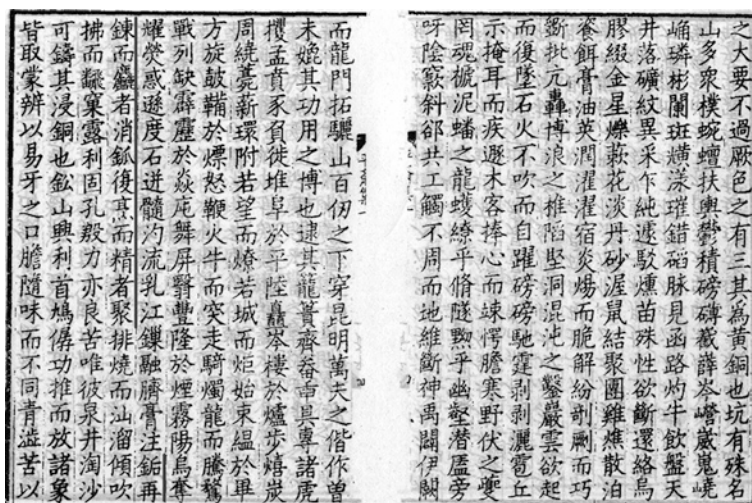 之大要不過厥色之有三其為黃銅也坑有殊名
山多衆樸蜿蟺扶輿鬱積磅礡巀嶭岑嵓崴嵬嶢
崅磷彬闌斑爌漾璀錯碯脉見函路灼牛飲盤天
井落礦紋異采乍純遽駁燻苗殊性欲斷還絡烏
膠綴金星爍蔌花淡丹砂渥鼠結聚團雞燋散泊
瓷餌膏油英潤濯濯宿炎煬而脆解紛剞劂而巧
斲批亢轟博浪之椎陷堅洞混沌之鑿巖雲欲起
而復墜石火不吹而自躍磅磅馳霆剥剥灑雹丘
示掩耳而疾遯木客捧心而竦愕膽寒野伏之夔
罔魂褫泥蟠之龍蠖繚乎脩隧黝乎幽壑潜廬旁
呀陰窾斜郤共工觸不周而地維斷神禹闢伊闕
而龍門拓驪山百仞之下穿昆明萬夫之偕作曽
未娩其功用之博也逮其籠簣齋畚臿具辜諸虎
攫孟賁豕負徙堆阜於平陸矗岑樓於爐步熺炭
周繞薨薪環附若望而燎若城而炬始束緼於畢
方旋鼓鞴於熛怒鞭火牛而突走騎燭龍而騰驁
戰列缺霹靂於焱庉舞屏翳豐隆於煙霧陽烏奪
耀熒惑遜度石迸髓沟流乳江鏁融臍膏注鉐再
鍊而麤者消鈲復烹而精者聚排燒而汕溜傾吹
拂而翻窠露利固孔殷力亦良苦唯彼泉井淘沙
可鑄其浸銅也鈆山興利首鳩僝功推而放諸象
皆取蒙辨以易牙之口膽隨味而不同青澁苦以